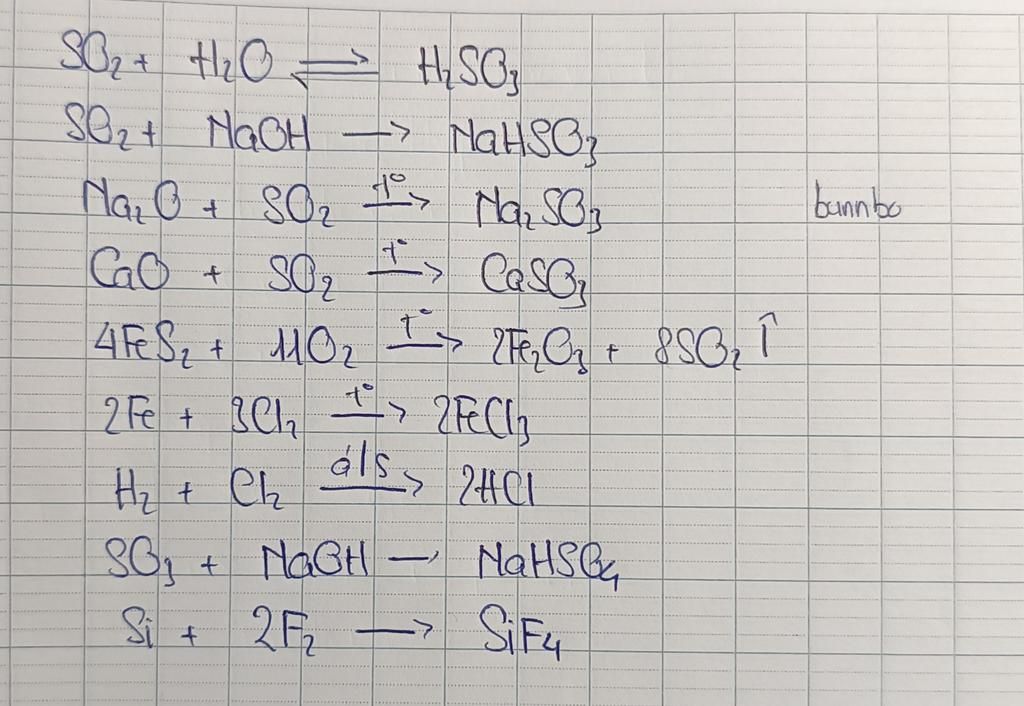 SO₂ + H₂O ⇌ H₂SO₃
SO₂ + NaOH → NaHSO₃
Na₂O + SO₂ →(t°) Na₂SO₃ bunnbo
CaO + SO₂ →(t°) CaSO₃
4FeS₂ + 11O₂ →(t°) 2Fe₂O₃ + 8SO₂ ↑
2Fe + 3Cl₂ →(t°) 2FeCl₃
H₂ + Cl₂ →(á/s) 2HCl
SO₃ + NaOH → NaHSO₄
Si + 2F₂ → SiF₄